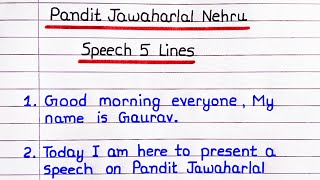 Pandit Jawaharlal Nehru
Speech 5 Lines
1. Good morning everyone, My
name is Gaurav.
2. Today I am here to present a
speech on Pandit Jawaharlal